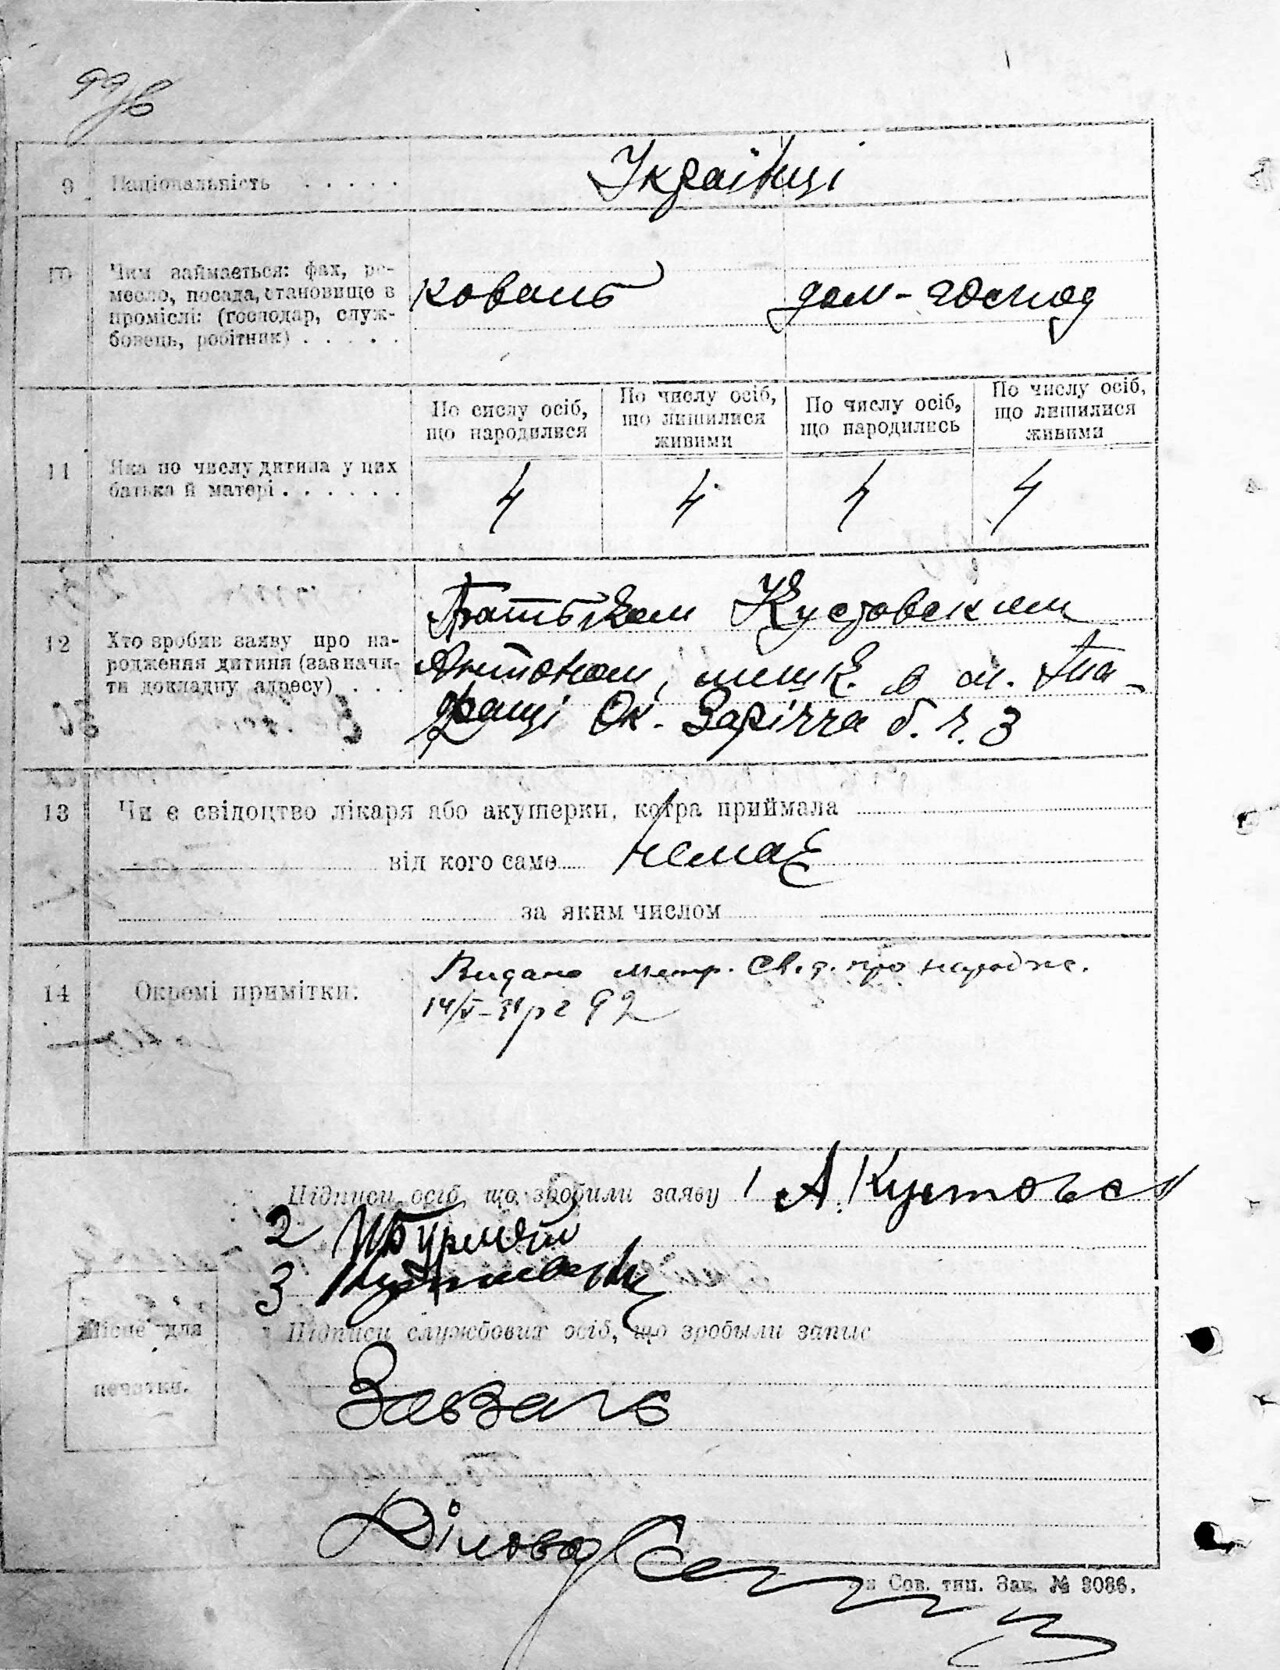 9 Національність . . . . . Українці
Чим займається: фах, ре-
месло, посада, становище в
проміслі: (господар, служ-
бовець, робітник) . . . . .
коваль дом-господ
11 Яка по числу дитина у цих
батька й матері . . . . . .
По числу осіб,
що народилися
По числу осіб,
що лишилися
живими
По числу осіб,
що народились
По числу осіб,
що лишилися
живими
4 4 4 4
12 Хто зробив заяву про на-
родження дитини (зазначи-
ти докладну адресу) . . .
Батьком Кустовским
Антоном, мешк. в м. Та-
ращі Ок. Зарічча б. ч. 3
13 Чи є свідоцтво лікаря або акушерки, котра приймала
від кого саме Немає
за яким числом
14 Окремі примітки:
Видано метр. св. про народж.
Підписи осіб, що зробили заяву 1 А. Кустовс
2
3
Підписи службових осіб, що зробыли запис
Місце для
печатки.
Завзагс
Діловод
Сов. тип. Зак. № 3086.